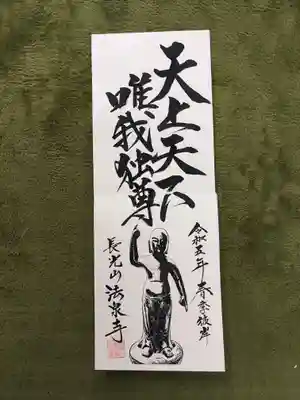 天上天下
唯我独尊
令和五年 春季彼岸
長光山 法泉寺